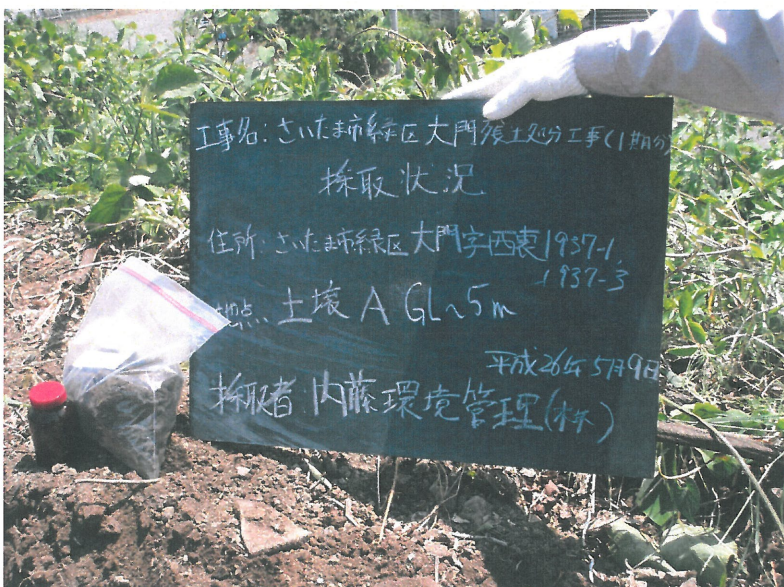 工事名:さいたま市緑区大門残土処分工事(1期分)
採取状況
住所:さいたま市緑区大門字西裏1937-1,
1937-3
地点 土壌A GL~5m
平成26年5月9日
採取者 内藤環境管理(株)